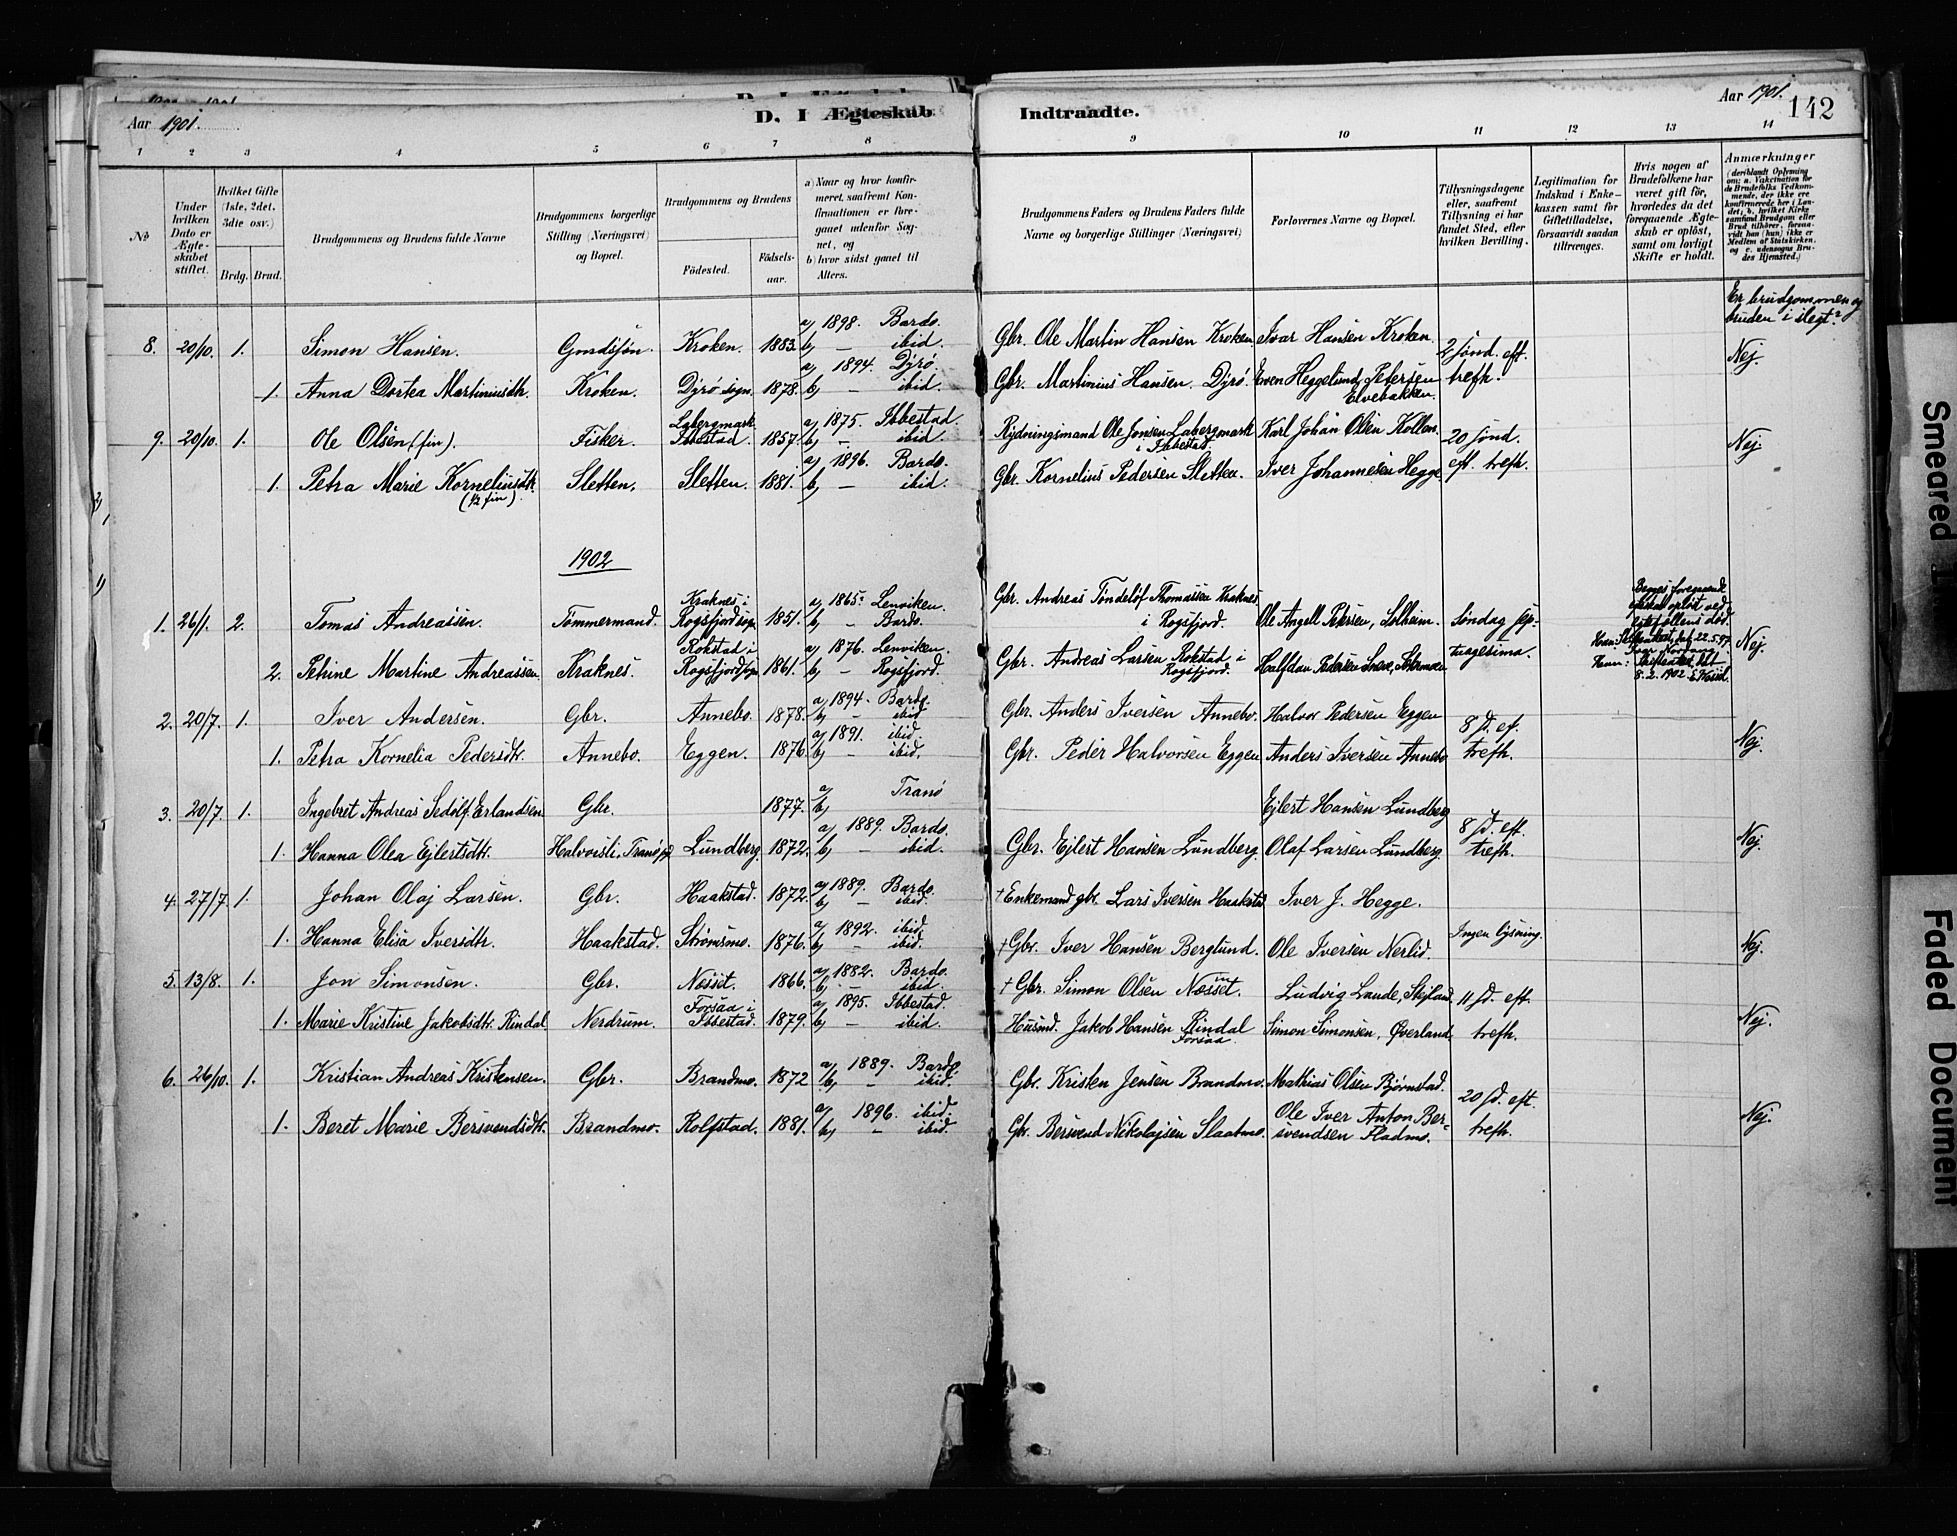 Aar 1901.
D. I Ægteskab
Indtraadte.
Aar 1901.
142
1 2 3 4 5 6 7 8
9 10 11 12 13 14
№
Under hvilken Dato er Ægteskabet stiftet.
Hvilket Gifte (1ste, 2det, 3die osv.)
Brdg. Brud.
Brudgommens og Brudens fulde Navne
Brudgommens borgerlige Stilling (Næringsvei) og Bopæl.
Brudgommens og Brudens
Födested.
Födsels-aar.
a) Naar og hvor konfirmeret, saafremt Konfirmationen er foregaaet udenfor Sognet, og
b) hvor sidst gaaet til Alters.
Brudgommens Faders og Brudens Faders fulde Navne og borgerlige Stillinger (Næringsvei)
Forlovernes Navne og Bopæl.
Tillysningsdagene eller, saafremt Tillysning ei har fundet Sted, efter hvilken Bevilling.
Legitimation for Indskud i Enkekassen samt for Giftetilladelse, forsaavidt saadan tiltrænges.
Hvis nogen af Brudefolkene har været gift før, hvorledes da det foregaaende Ægteskab er oplöst, samt om lovligt Skifte er holdt.
Anmærkninger
(deriblandt Oplysning om: a. Vakcination for de Brudefolks Vedkommende, der ikke ere konfirmerede her i Landet; b. hvilket Kirkesamfund Brudgom eller Brud tilhører, forsaavidt han (hun) ikke er Medlem af Statskirken, og c. udensogns Brudes Hjemsted.)
Er brudgommen og bruden i slegt?
8. 20/10. 1. Simon Hansen. Kroken. 1883. a) 1898. Bardo. b) — ibid. Gbr. Ole Martin Hansen Kroken Ivar Hansen Kroken. 2 sønd. eft. trefh. Nej.
1. Anna Dortea Martiniusdtr. Kroken. Dyrø sogn. 1878. a) 1894. Dyrø. b) — ibid. Gbr. Martinius Hansen Dyrø. Even Heggelund Petersen Elvebakken.
9. 20/10. 1. Ole Olsen (fin). Fisker. Labergmark Ibbestad. 1857. a) 1875. Ibbestad. b) — ibid Rydningsmand Ole Jonsen Labergmark i Ibbestad. Karl Johan Olsen Kollen. 20 sønd. eft. trefh. Nej
1. Petra Marie Korneliusdtr. (½ fin) Sletten. Sletten. 1881. a) 1896. Bardo. b) — ibid. Gbr. Kornelius Pedersen Sletten. Iver Johannesen Hegge
1902
1. 26/1. 2. Tomas Andreassen. Tømmermand. Kraknes i Rogsfjord sogn 1851. a) 1865. Lenviken. b) — Bardo. Gbr. Andreas Tøndelöf Thomassen Kraknes i Rogsfjord. Ole Angell Petersen, Solheim. Søndag sep-tuagesima. Nej.
2. Petrine Martine Andreassen. Kraknes. Rokstad i Rogsfjord sogn 1861. a) 1876. Lenviken. b) — Rogsfjord. Gbr. Andreas Larsen Rokstad i Rogsfjord. Halfdan Pedersen
2. 20/7. 1. Iver Andersen. Gbr. Annebo. 1878. a) 1894. Bardo. b) — ibid Gbr. Anders Iversen Annebo. Halvor Pedersen Eggen 8 sd. ef. trefh. Nej.
1. Petra Kornelia Pedersdtr. Annebo. Eggen. 1876. a) 1891. ibid. b) — ibid. Gbr. Peder Halvorsen Eggen Anders Iversen Annebo
3. 20/7. 1. Ingebret Andreas Sedolf Erlandsen Gbr. 1877. a) Tranø b) Ejlert Hansen Lundberg 8 sd. eft. trefh. Nej.
1. Hanna Olea Ejlertsdtr. Halvorsli, Tranøs Lundberg. 1872. a) 1889. Bardo. b) — ibid. Gbr. Ejlert Hansen Lundberg. Olaf Larsen Lundberg.
4. 27/7. 1. Johan Olaj Larsen. Gbr. Haakstad. 1872. a) 1889. Bardo. b) — ibid. † Enkemand gbr. Lars Iversen Haakstad Iver J. Hegge. Ingen lysning. Nej.
1. Hanna Elisa Iversdtr. Haakstad. Strømsmo. 1876. a) 1892. ibid. b) — ibid. † Gbr. Iver Hansen Berglund. Ole Iversen Nerlid.
5. 13/8. 1. Jon Simonsen. Gbr. Nøsset. 1866. a) 1882. Bardo. b) — ibid. † Gbr. Simon Olsen Næsset. Ludvig Lande, 11 sd. eft. trefh. Nej.
1. Marie Kristine Jakobsdtr. Rindal Nerdrum. Forsaa i Ibbestad. 1879. a) 1895. Ibbestad. b) — ibid. Husmd. Jakob Hansen Rindal Forsaa. Simon Simonsen, Øverland.
6. 26/10. 1. Kristian Andreas Kristensen. Gbr. Brandmo. 1872 a) 1889. Bardo. b) — ibid. Gbr. Kristen Jensen Brandmo. Mathias Olsen Bjørnstad. 20 sd. eft. trefh. Nej.
1. Beret Marie Bersvendsdtr. Brandmo. Rolfstad. 1881. a) 1896. ibid. b) — ibid. Gbr. Bersvend Nikolajsen Slaatmo. Ole Iver Anton Ber-svendsen Fladmo.
Smeared
Faded Document